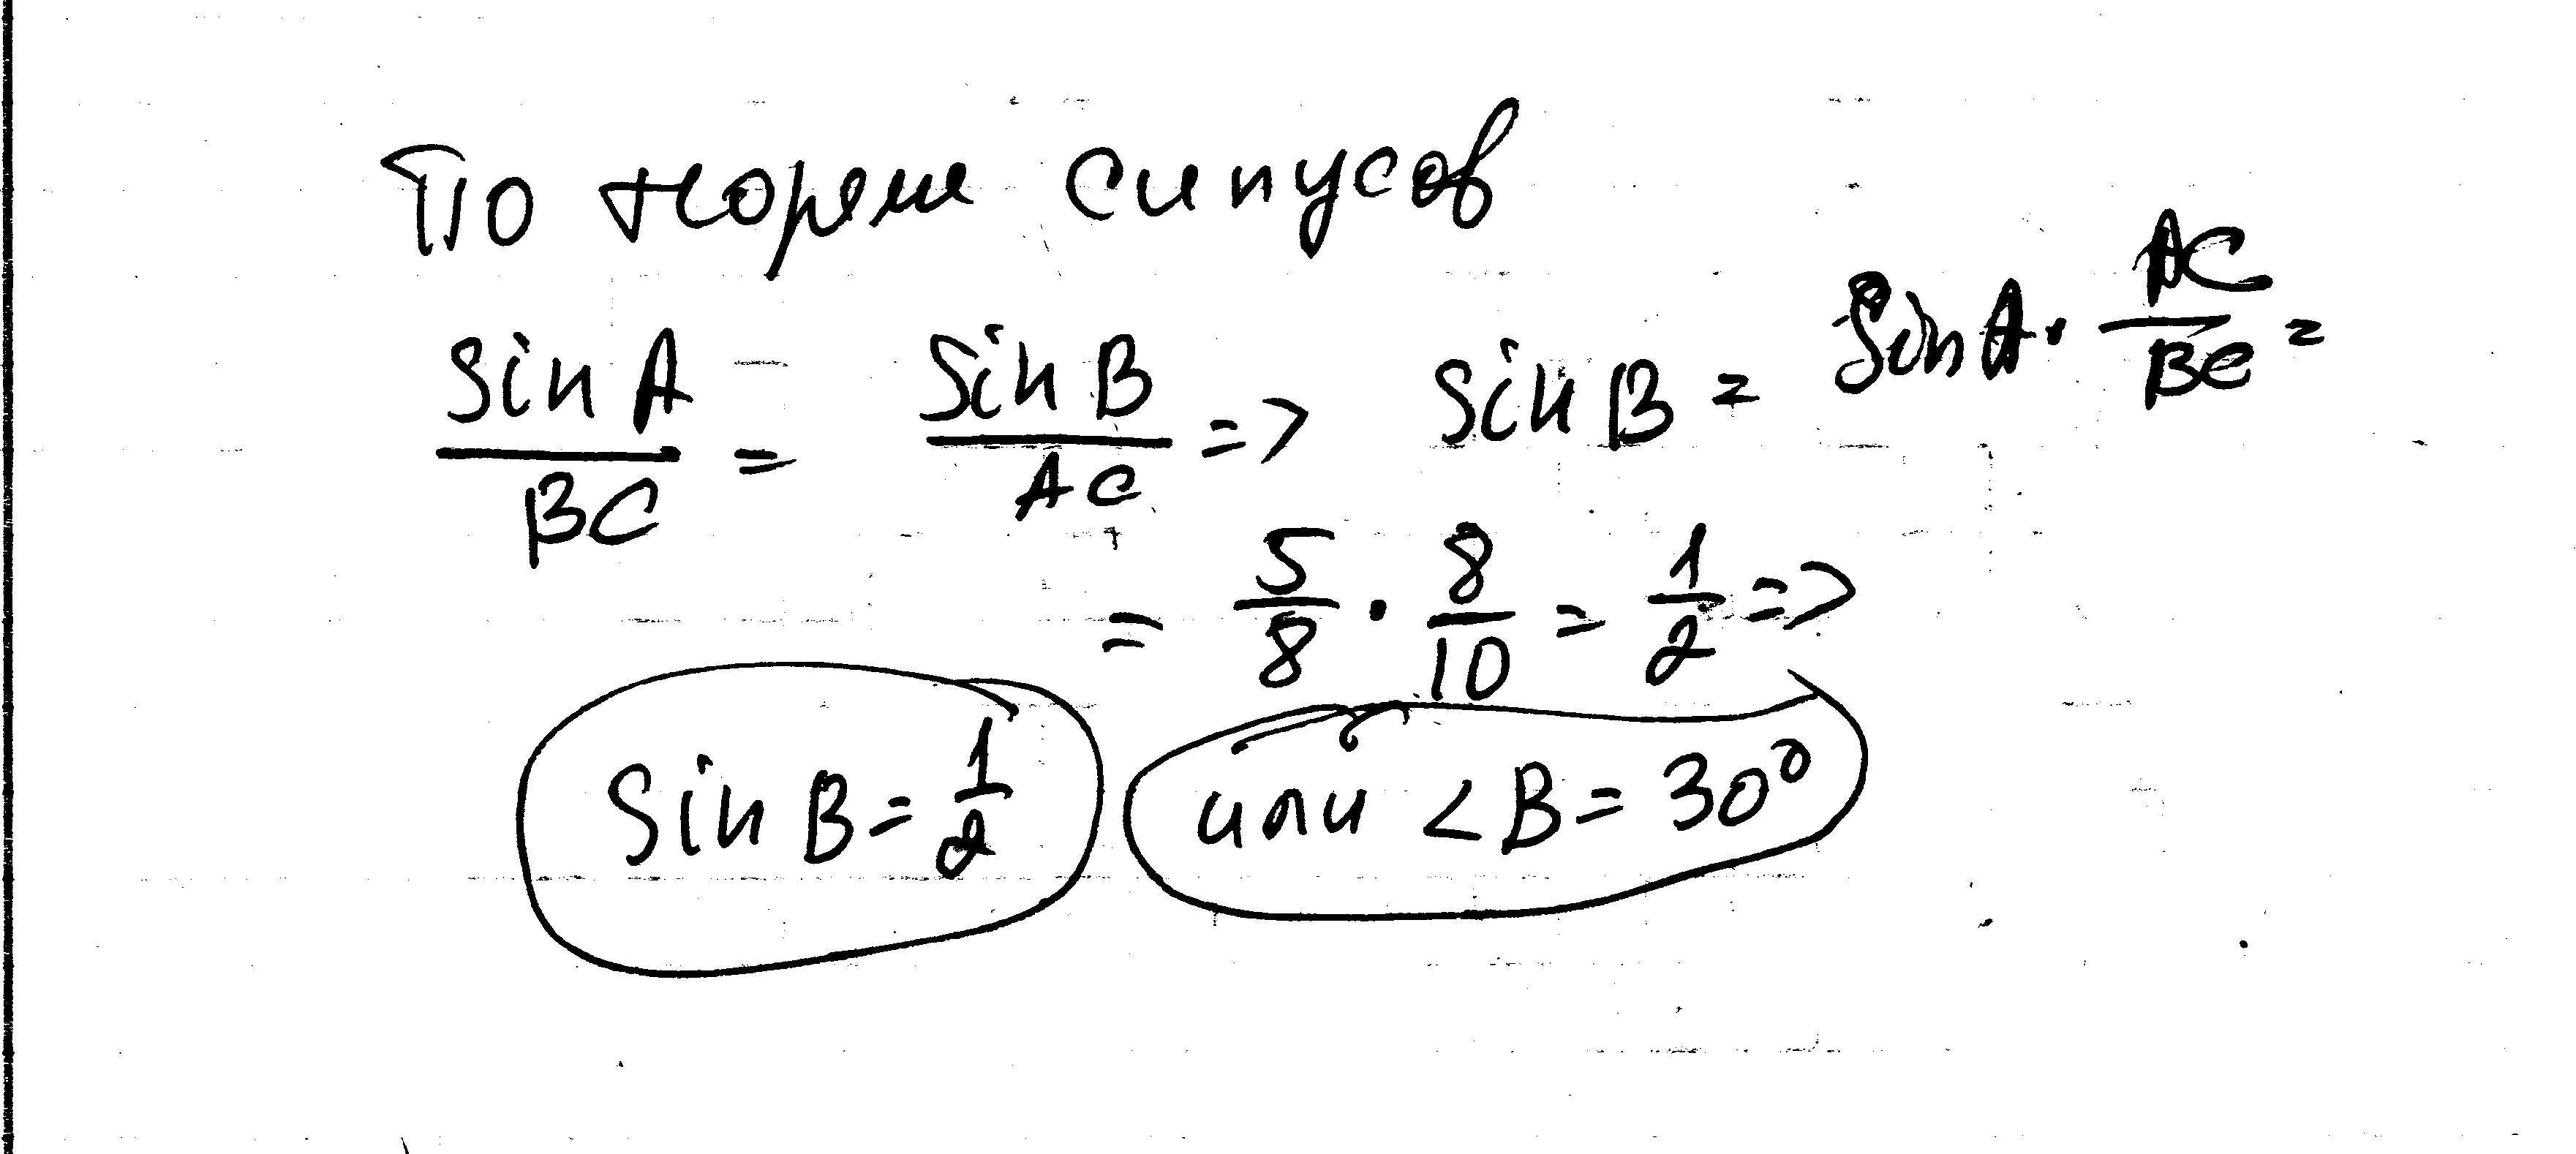 По теореме синусов
sin A / BC = sin B / AC => sin B = sin A · AC / BC =
= 5/8 · 8/10 = 1/2 =>
sin B = 1/2 или <B = 30°